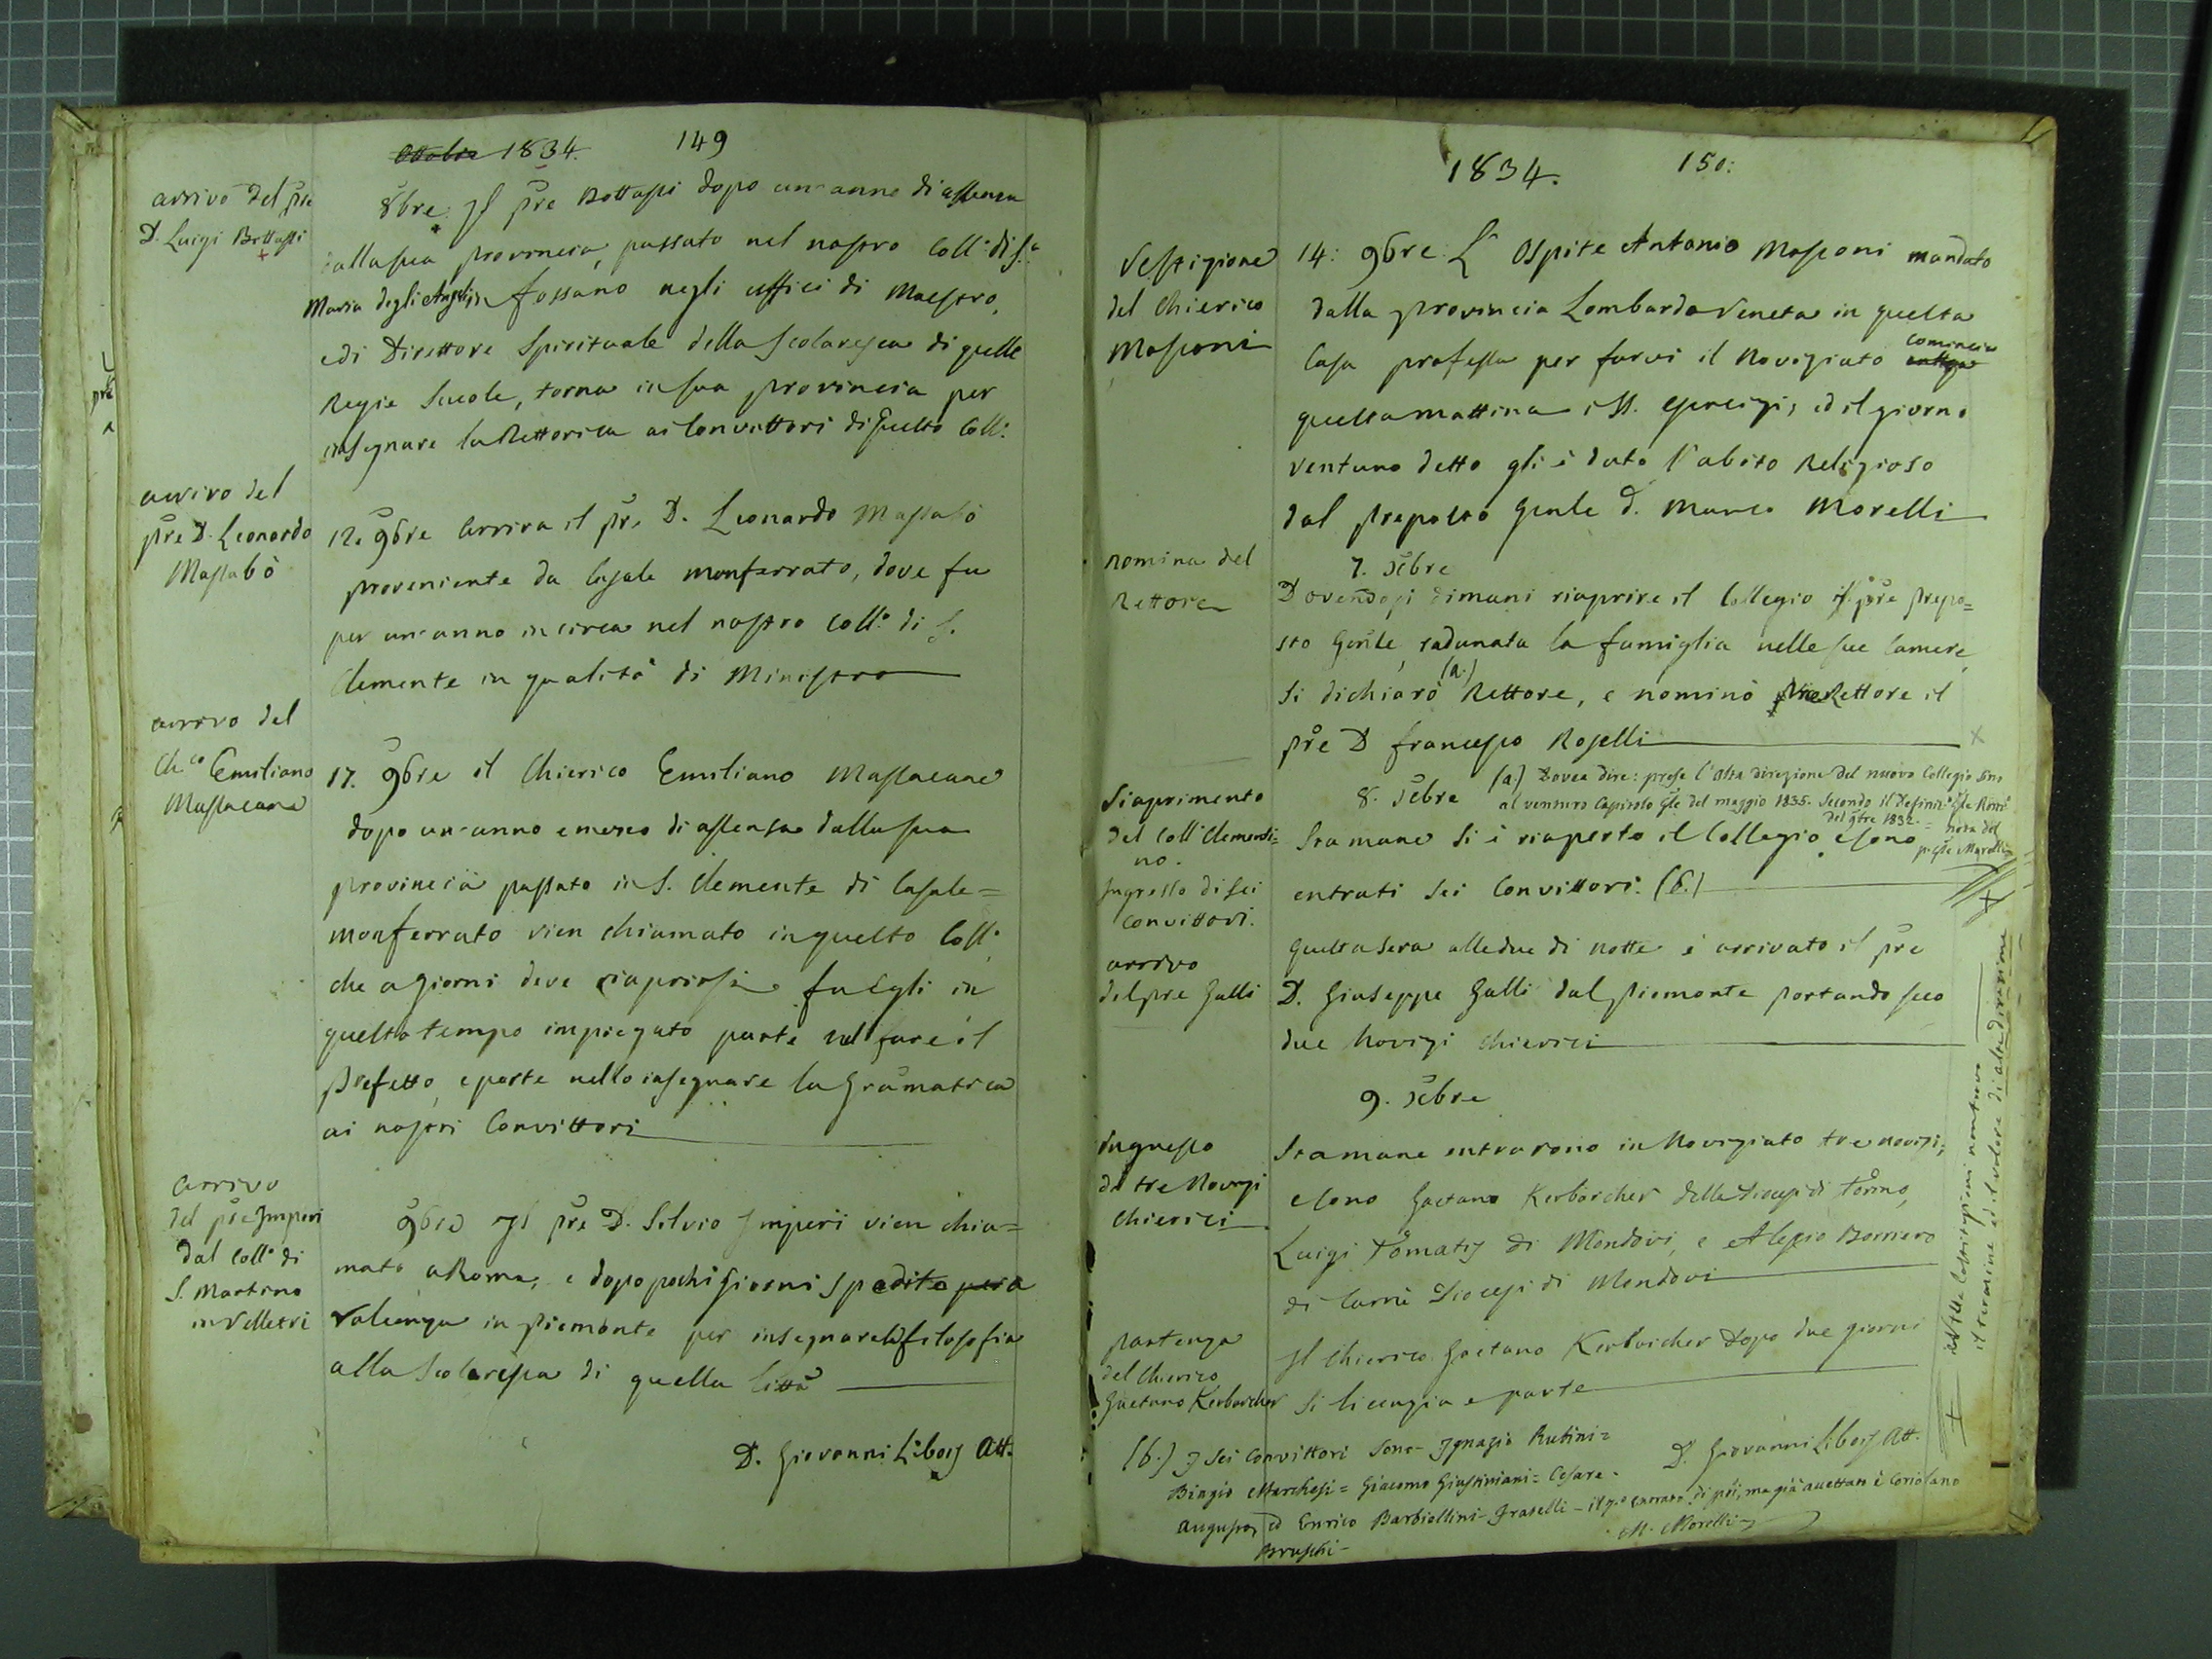 1834. 149
arrivo del pre
D. Luigi Bottassi
8bre Il pre Bottassi dopo un anno di assenza
dalla sua provincia, passato nel nostro Coll.o di S.a
Maria degli Angeli in fossano negli uffici di Maestro,
e di Direttore Spirituale della Scolaresca di quelle
Regie Scuole, torna in sua provincia per
insegnare la Rettorica ai Convittori di questo Coll.o
arrivo del
pre D. Leonardo
Massabò
12. 9bre arriva il pre D. Leonardo Massabò
proveniente da Casale monferrato, dove fu
per un anno in circa nel nostro Coll.o di S.
Clemente in qualità di Ministro
arrivo del
Ch.co Emiliano
Massacane
17. 9bre il Chierico Emiliano Massacane
dopo un anno e mezzo di assenza dalla sua
provincia passato in S. Clemente di Casale=
monferrato vien chiamato in questo Coll.o
che a giorni deve riaprirsi. fu egli in
questo tempo impiegato parte nel fare il
prefetto, e parte nello insegnare la Gramatica
ai nostri Convittori
arrivo
del pre Imperi
dal Coll.o di
S. Martino
in Velletri
9bre Il pre D. Silvio Imperi vien chia=
mato a Roma, e dopo pochi giorni spedito a
Valenza in Piemonte per insegnare la filosofia
alla Scolaresca di quella Città
D. Giovanni Libois Att.
1834. 150.
Vestizione
del Chierico
Mosconi
14: 9bre L'Ospite Antonio Mosconi mandato
dalla provincia Lombardo Veneta in questa
Casa professa per farvi il Noviziato comincia
questa mattina i SS. esercizi, ed il giorno
ventuno detto gli è dato l'abito Religioso
dal preposto Gnle D. Marco Morelli
nomina del
Rettore
7. Xbre
Dovendosi dimani riaprire il Collegio il pre prepo=
sto Gnle, radunata la famiglia nelle sue Camere,
si dichiarò (a.) Rettore, e nominò Vice Rettore il
pre D francesco Roselli
(a.) Dovea dire: prese l'alta direzione del nuovo Collegio sino
al venturo Capitolo Gle del maggio 1835. Secondo il Definit.o Gle
del 9bre 1832. = nota del
p. Gle Morelli
Riaprimento
del Coll.o Clementi=
no.
Ingresso di sei
Convittori.
8. Xbre
Stamane si è riaperto il Collegio e sono
entrati sei Convittori. (b.)
arrivo
del pre Galli
Questa sera alle due di notte è arrivato il pre
D. Giuseppe Galli dal piemonte portando seco
due Novizi Chierici
9. Xbre
Ingresso
di tre Novizi
Chierici
Stamane entrarono in Noviziato tre novizi;
e sono Gaetano Kerbaicher della Diocesi di Torino,
Luigi Tomatis di Mondovi, e Alessio Borriero
di Carrù Diocesi di Mondovi
partenza
del Chierico
Gaetano Kerbaicher
Il Chierico Gaetano Kerbaicher dopo due giorni
si licenzia e parte
D. Giovanni Libois Att.
(b.) I sei Convittori sono - Ignazio Rutini =
Biagio Marchesi = Giacomo Giustiniani = Cesare.
Augusto, ed Enrico Barbiellini - fratelli - il 7.o entrato di poi, ma già accettato è Coriolano
Bruschi - M. Morelli
nelle Costituzioni non trovo
il termine ed il valore di alta direzione